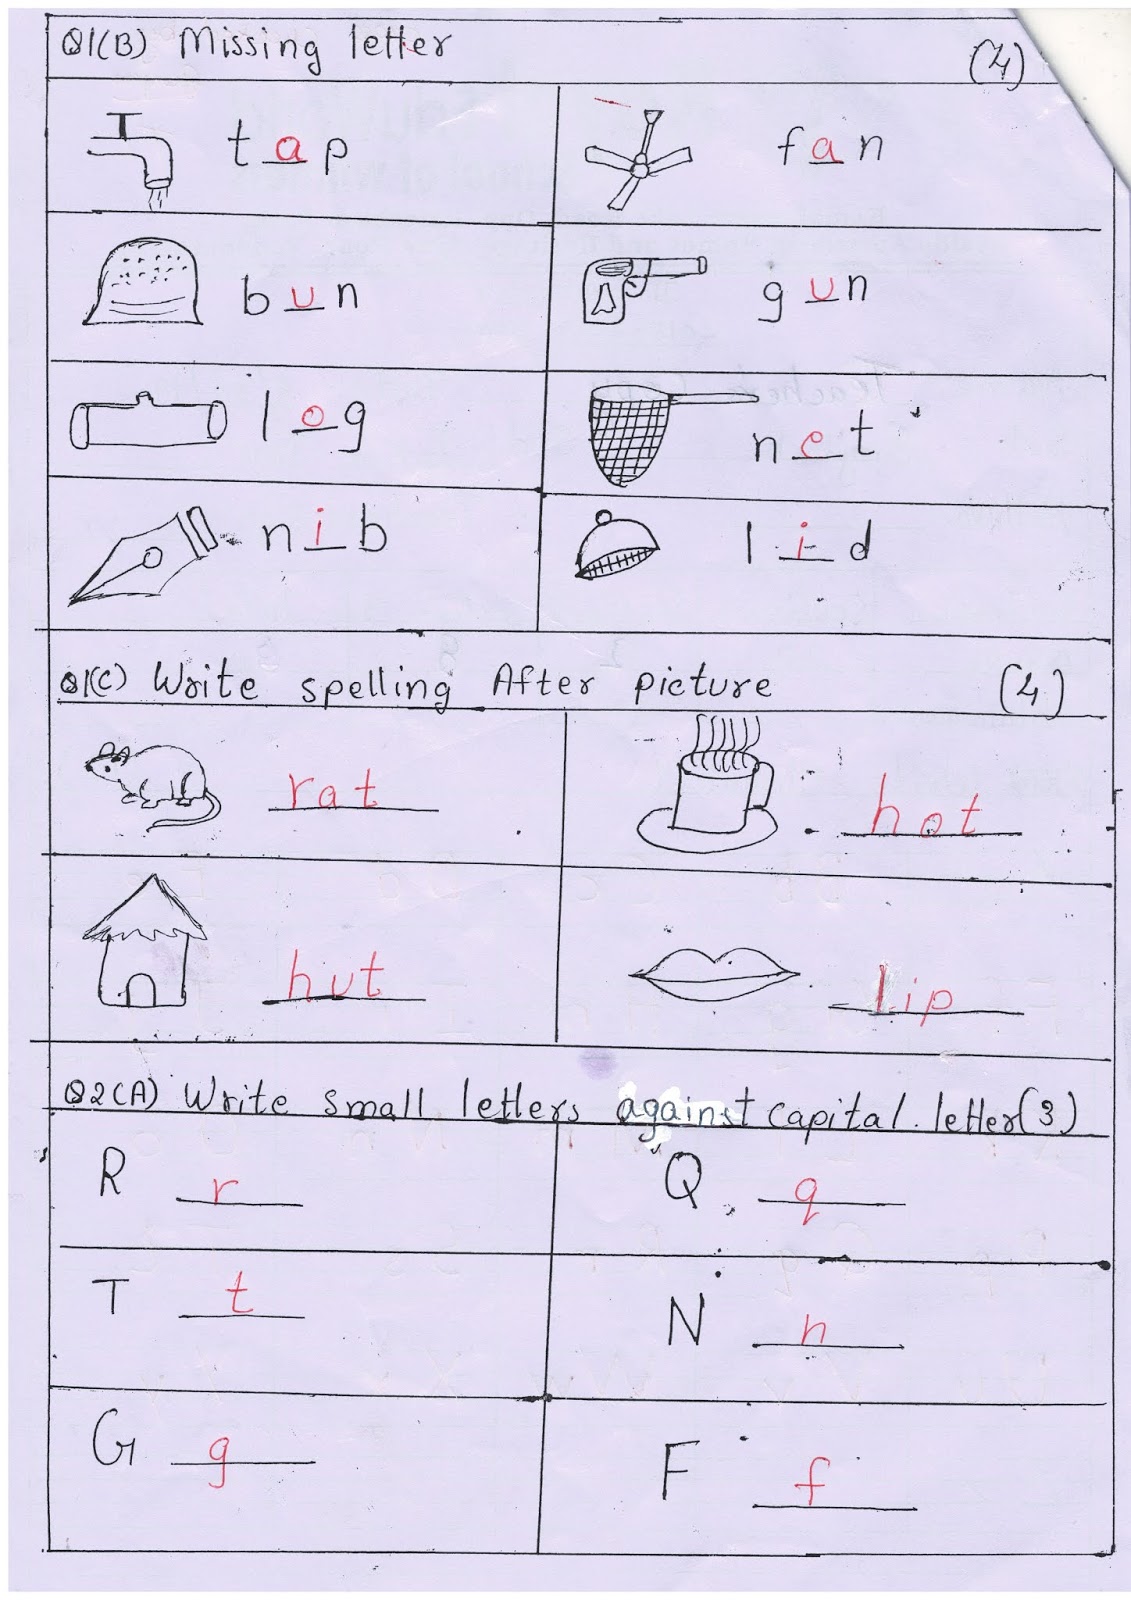 Q1(B) Missing letter (4)
tap fan
bun gun
log net
nib lid
Q1(C) Write spelling After picture (4)
rat hot
hut lip
Q2(A) Write small letters against capital. letter(3)
R r Q q
T t N n
G g F f